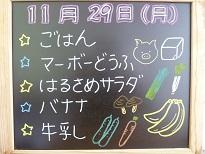 11月29日(月)
ごはん
マーボーどうふ
はるさめサラダ
バナナ
牛乳